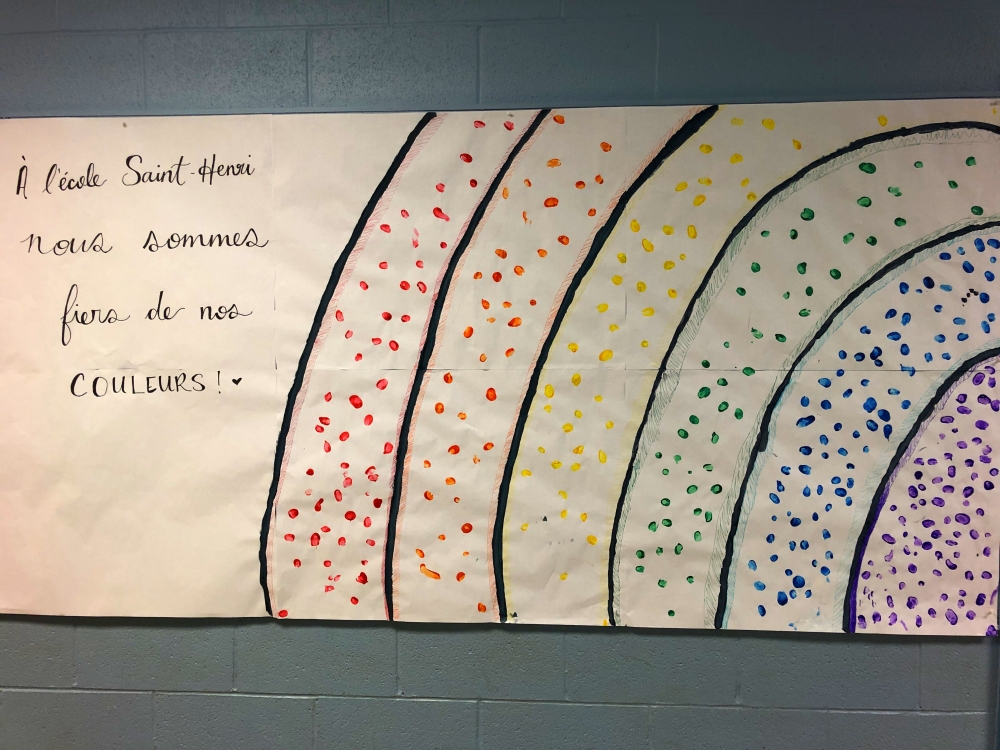 À l'école Saint-Henri
nous sommes
fiers de nos
COULEURS! ♥